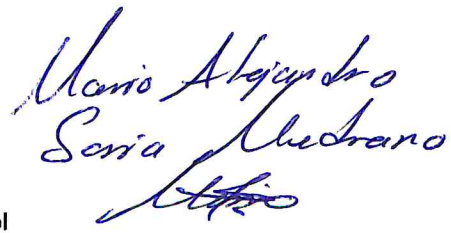 Mario Alejandro
Soria Medrano